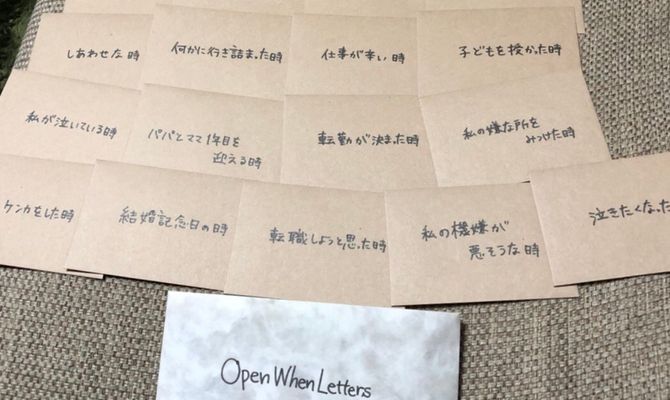 しあわせな時
何かに行き詰まった時
仕事が辛い時
子どもを授かった時
私が泣いている時
パパとママ1年目を
迎える時
転勤が決まった時
私の嫌な所を
みつけた時
ケンカをした時
結婚記念日の時
転職しようと思った時
私の機嫌が
悪そうな時
泣きたくなった
Open When Letters